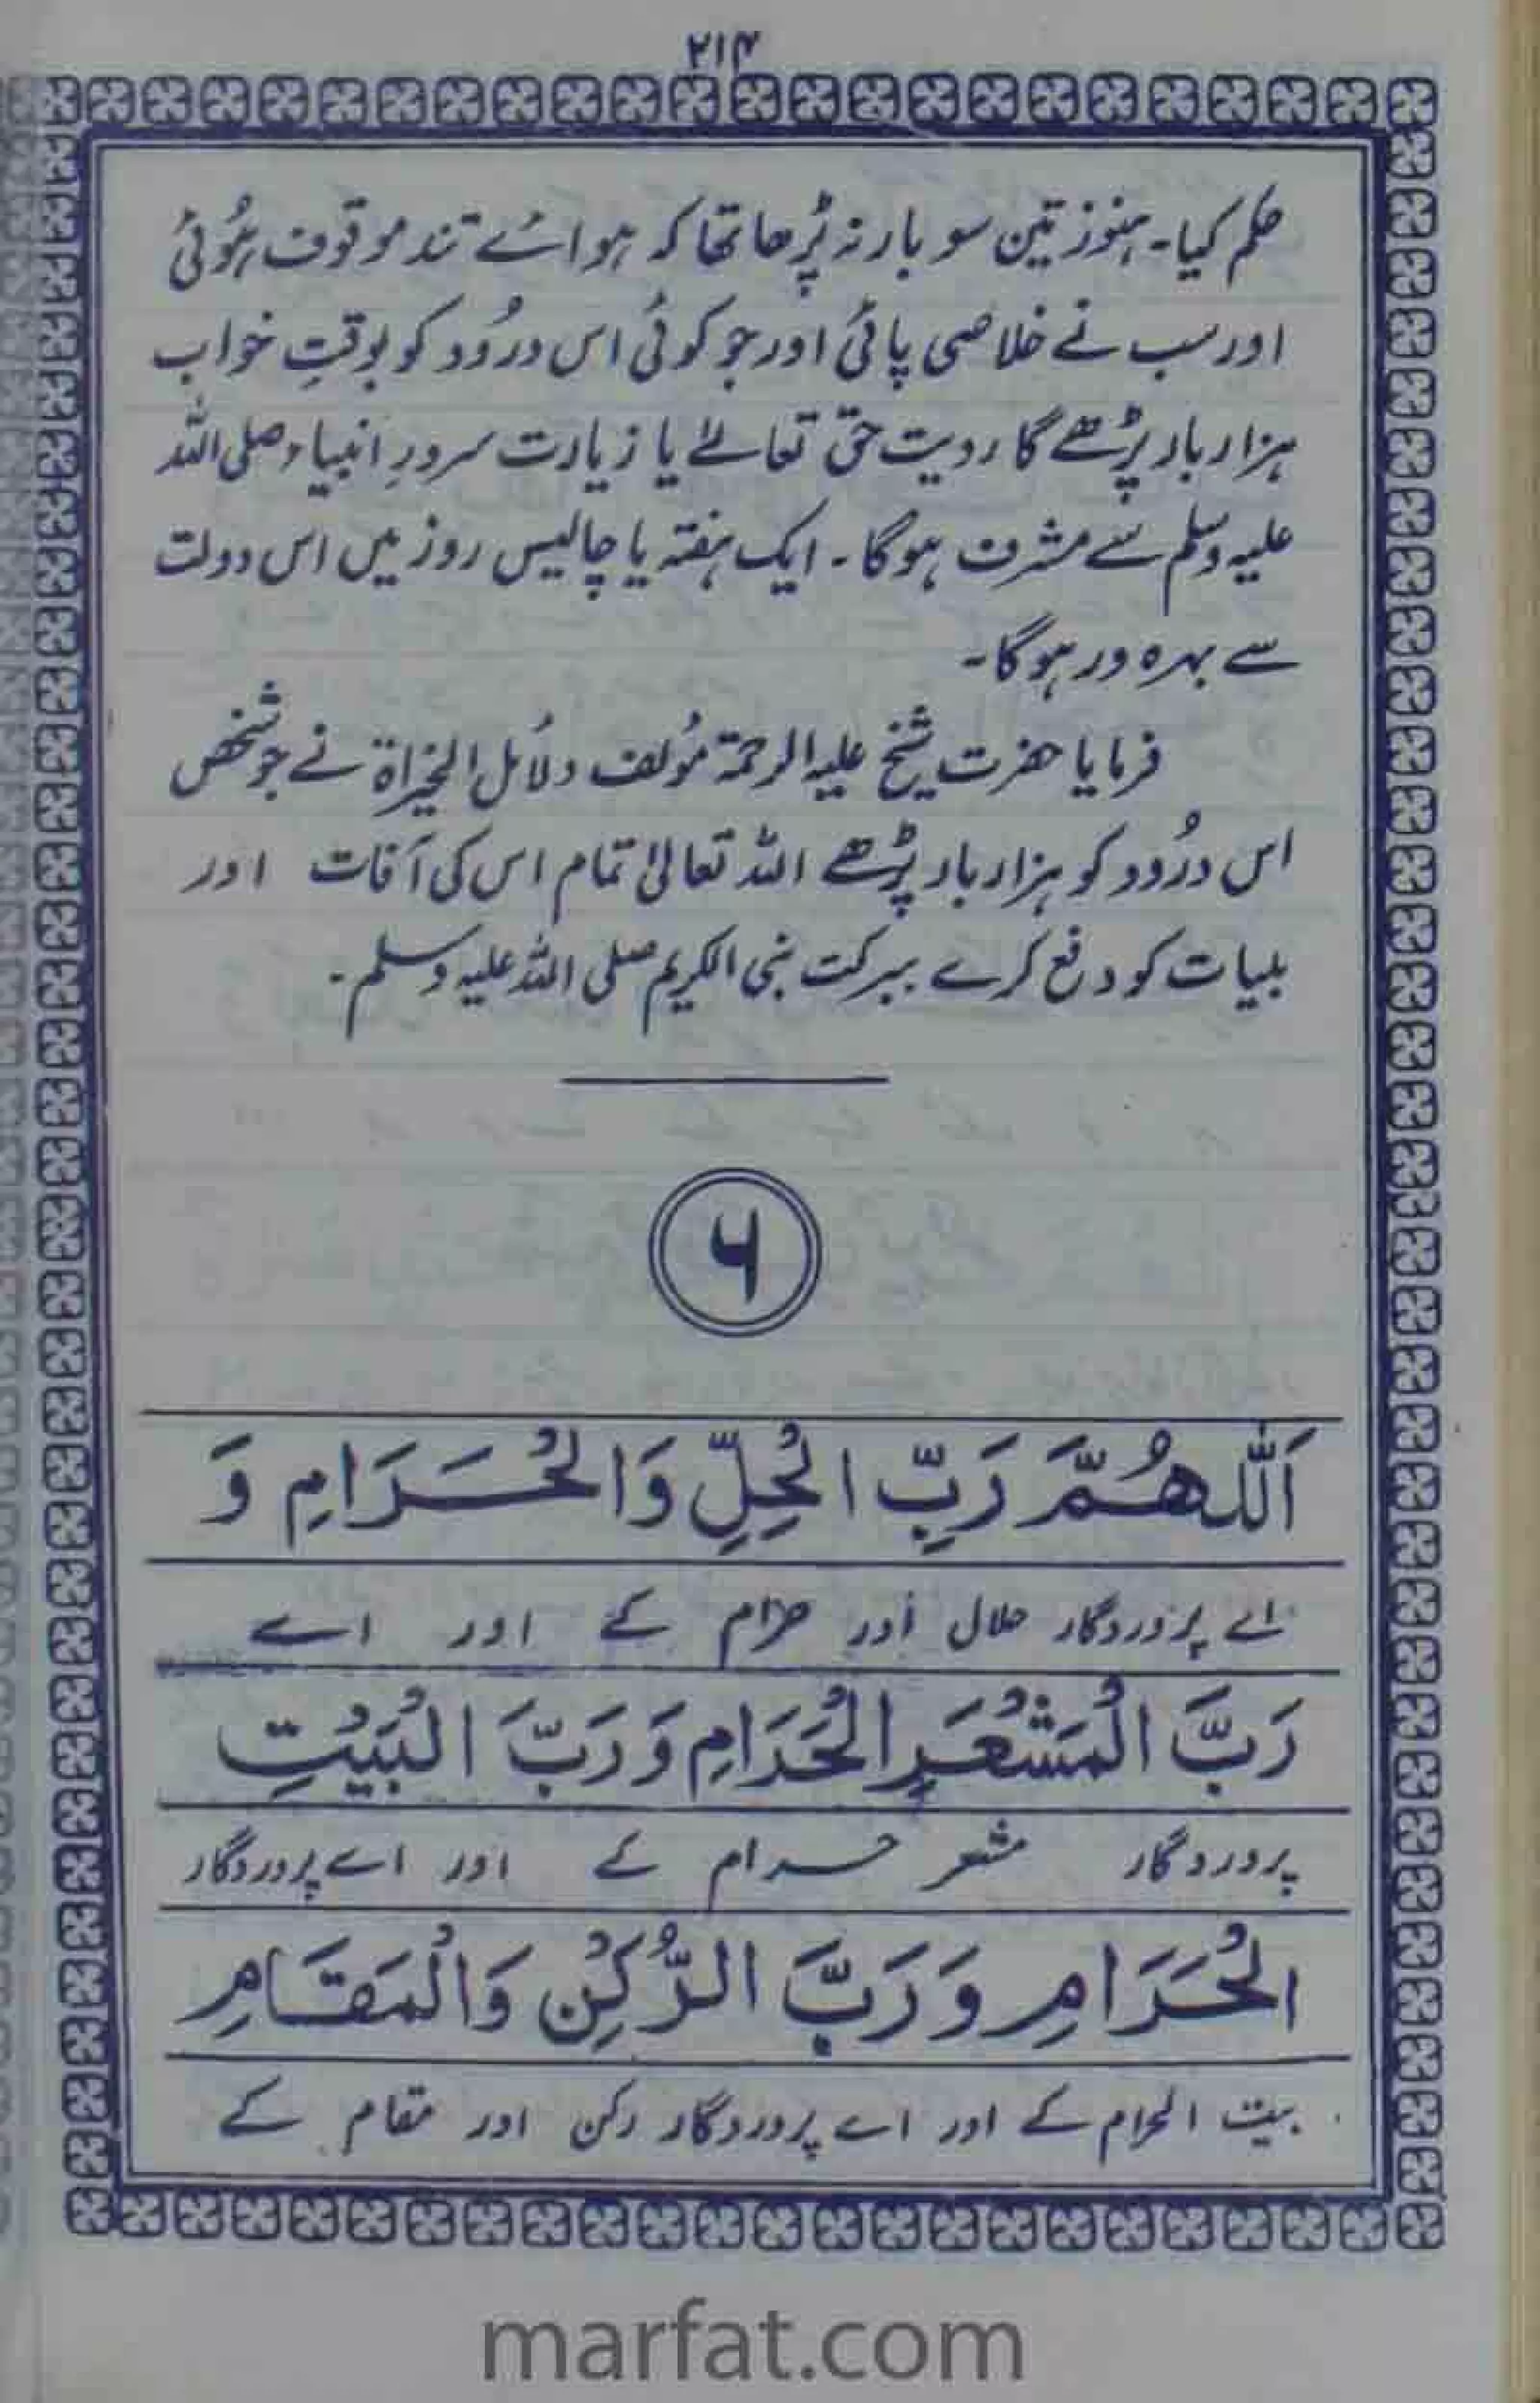 ۲۱۴
حکم کیا۔ ہنوز تین سو بار نہ پڑھا تھا کہ ہوائے تند موقوف ہُوئی
اور سب نے خلاصی پائی اور جو کوئی اس درُود کو بوقتِ خواب
ہزار بار پڑھے گا رویت حق تعالےٰ یا زیارت سرورِ انبیاء صلی اللہ
علیہ وسلم سے مشرف ہوگا۔ ایک ہفتہ یا چالیس روز میں اس دولت
سے بہرہ ور ہوگا۔
فرمایا حضرت شیخ علیہ الرحمۃ مؤلف دلائل الخیراۃ نے جو شخص
اس درُود کو ہزار بار پڑھے اللہ تعالیٰ تمام اس کی آفات اور
بلیات کو دفع کرے ببرکت نبی الکریم صلی اللہ علیہ وسلم۔
۶
اَللّٰهُمَّ رَبِّ الْحِلِّ وَالْحَرَامِ وَ
اے پروردگار حلال اور حرام کے اور اے
رَبَّ الْمَشْعَرِ الْحَرَامِ وَرَبَّ الْبَيْتِ
پروردگار مشعر حرام کے اور اے پروردگار
الْحَرَامِ وَرَبَّ الرُّكْنِ وَالْمَقَامِ
بیت الحرام کے اور اے پروردگار رکن اور مقام کے
marfat.com